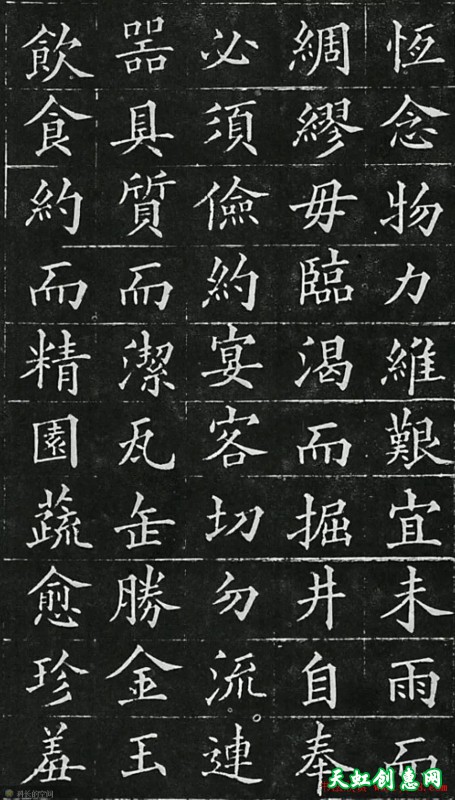 恆念物力維艱宜未雨而
綢繆毋臨渴而掘井自奉
必須儉約宴客切勿流連
器具質而潔瓦缶勝金玉
飲食約而精園蔬愈珍羞
天虹创意网